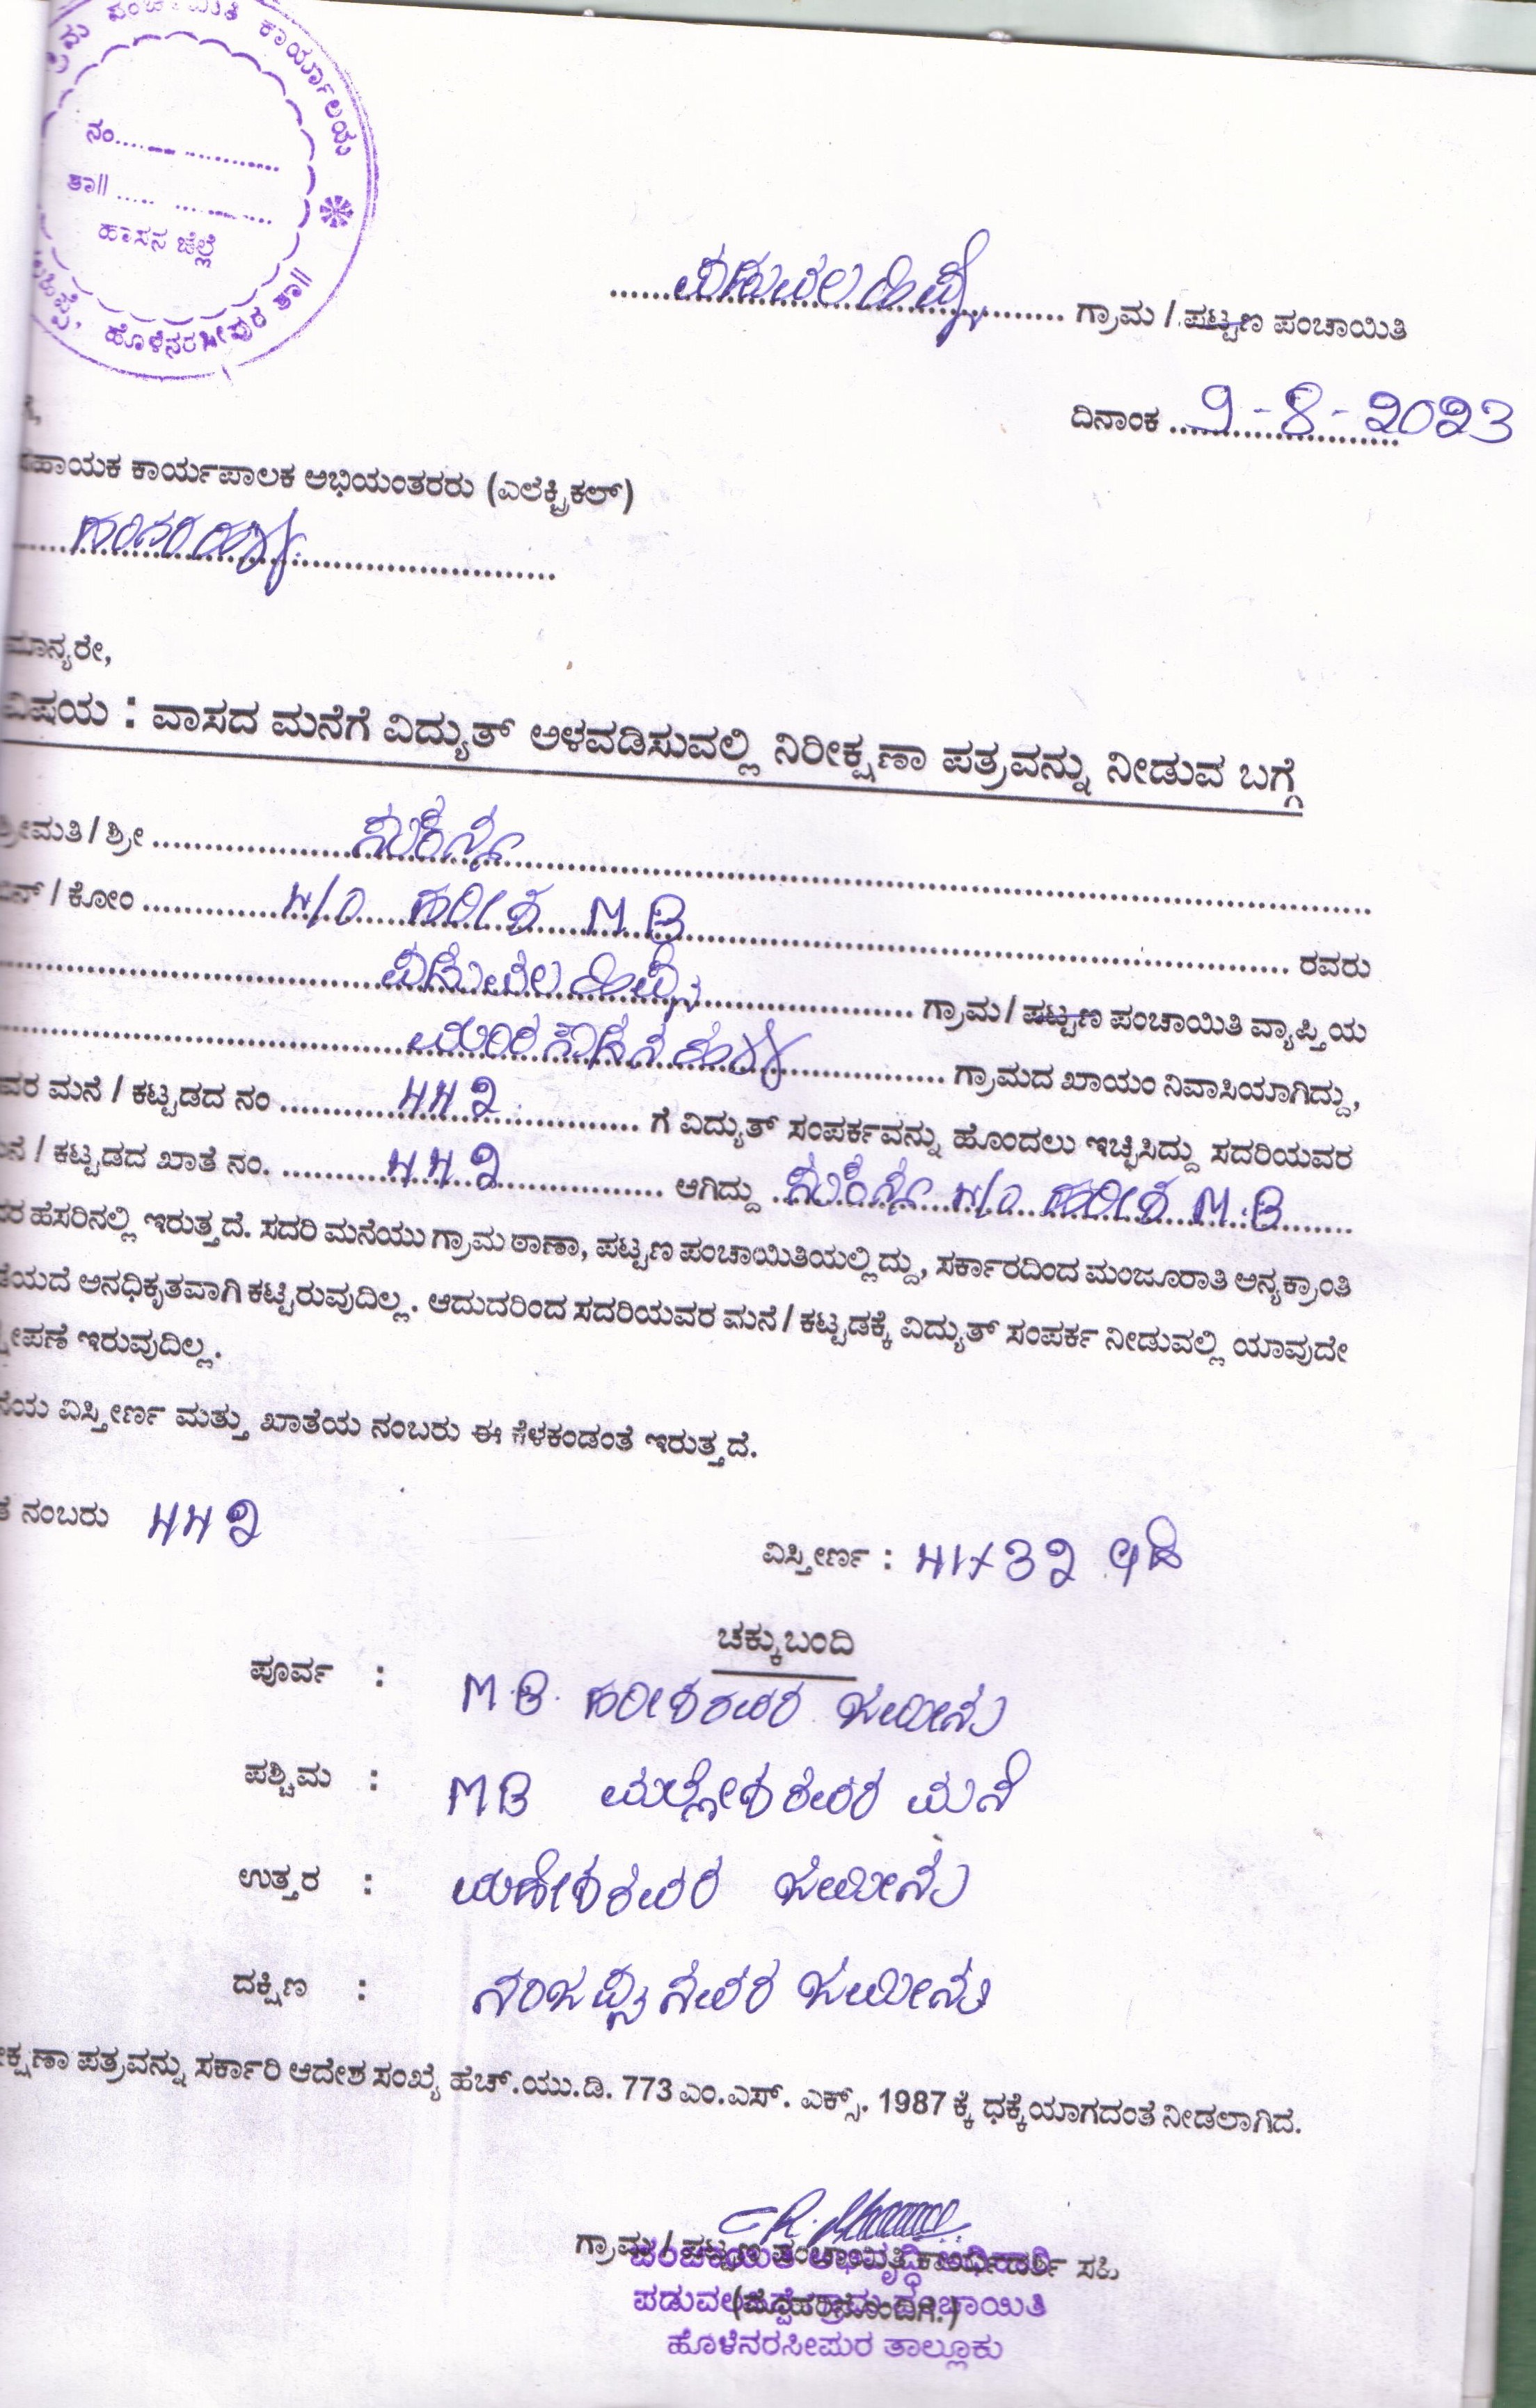 ಪಂಚಾಯಿತಿ ಕಾರ್ಯಾಲಯ
ನಂ.
ತಾ||
ಹಾಸನ ಜಿಲ್ಲೆ
ಹೊಳೆನರಸೀಪುರ ತಾ||
ಪಡುವಲಹಿಪ್ಪೆ ಗ್ರಾಮ / ಪಟ್ಟಣ ಪಂಚಾಯಿತಿ
ದಿನಾಂಕ 2-8-2023
ಸಹಾಯಕ ಕಾರ್ಯಪಾಲಕ ಅಭಿಯಂತರರು (ಎಲೆಕ್ಟ್ರಿಕಲ್)
ಮಾನ್ಯರೇ,
ವಿಷಯ : ವಾಸದ ಮನೆಗೆ ವಿದ್ಯುತ್ ಅಳವಡಿಸುವಲ್ಲಿ ನಿರೀಕ್ಷಣಾ ಪತ್ರವನ್ನು ನೀಡುವ ಬಗ್ಗೆ
ಶ್ರೀಮತಿ / ಶ್ರೀ
/ ಕೋಂ W/O ಹರೀಶ M B ರವರು
ಪಡುವಲಹಿಪ್ಪೆ ಗ್ರಾಮ / ಪಟ್ಟಣ ಪಂಚಾಯಿತಿ ವ್ಯಾಪ್ತಿಯ
ಗ್ರಾಮದ ಖಾಯಂ ನಿವಾಸಿಯಾಗಿದ್ದು,
ಮನೆ / ಕಟ್ಟಡದ ನಂ 442 ಗೆ ವಿದ್ಯುತ್ ಸಂಪರ್ಕವನ್ನು ಹೊಂದಲು ಇಚ್ಛಿಸಿದ್ದು ಸದರಿಯವರ
/ ಕಟ್ಟಡದ ಖಾತೆ ನಂ. 442 ಆಗಿದ್ದು W/O ಹರೀಶ M.B
ಹೆಸರಿನಲ್ಲಿ ಇರುತ್ತದೆ. ಸದರಿ ಮನೆಯು ಗ್ರಾಮ ಠಾಣಾ, ಪಟ್ಟಣ ಪಂಚಾಯಿತಿಯಲ್ಲಿದ್ದು, ಸರ್ಕಾರದಿಂದ ಮಂಜೂರಾತಿ ಅನ್ಯಕ್ರಾಂತಿ
ಅನಧಿಕೃತವಾಗಿ ಕಟ್ಟಿರುವುದಿಲ್ಲ. ಆದುದರಿಂದ ಸದರಿಯವರ ಮನೆ / ಕಟ್ಟಡಕ್ಕೆ ವಿದ್ಯುತ್ ಸಂಪರ್ಕ ನೀಡುವಲ್ಲಿ ಯಾವುದೇ
ಇರುವುದಿಲ್ಲ.
ವಿಸ್ತೀರ್ಣ ಮತ್ತು ಖಾತೆಯ ನಂಬರು ಈ ಕೆಳಕಂಡಂತೆ ಇರುತ್ತದೆ.
ನಂಬರು 442
ವಿಸ್ತೀರ್ಣ : 41x32 ಅಡಿ
ಚಕ್ಕುಬಂದಿ
ಪೂರ್ವ : M.B. ಹರೀಶರವರ ಜಮೀನು
ಪಶ್ಚಿಮ : MB ಮಲ್ಲೇಶರವರ ಮನೆ
ಉತ್ತರ : ಮಹೇಶರವರ ಜಮೀನು
ದಕ್ಷಿಣ : ನಂಜಪ್ಪನವರ ಜಮೀನು
ಪತ್ರವನ್ನು ಸರ್ಕಾರಿ ಆದೇಶ ಸಂಖ್ಯೆ ಹೆಚ್.ಯು.ಡಿ. 773 ಎಂ.ಎಸ್. ಎಕ್ಸ್. 1987 ಕ್ಕೆ ಧಕ್ಕೆಯಾಗದಂತೆ ನೀಡಲಾಗಿದೆ.
ಗ್ರಾಮ / ಪಟ್ಟಣ ಪಂಚಾಯಿತಿ ಕಾರ್ಯದರ್ಶಿ ಸಹಿ
ಪಂಚಾಯತಿ ಅಭಿವೃದ್ಧಿ ಅಧಿಕಾರಿ
(ಮೊಹರಿನೊಂದಿಗೆ.)
ಪಡುವಲಹಿಪ್ಪೆ ಗ್ರಾಮ ಪಂಚಾಯಿತಿ
ಹೊಳೆನರಸೀಪುರ ತಾಲ್ಲೂಕು